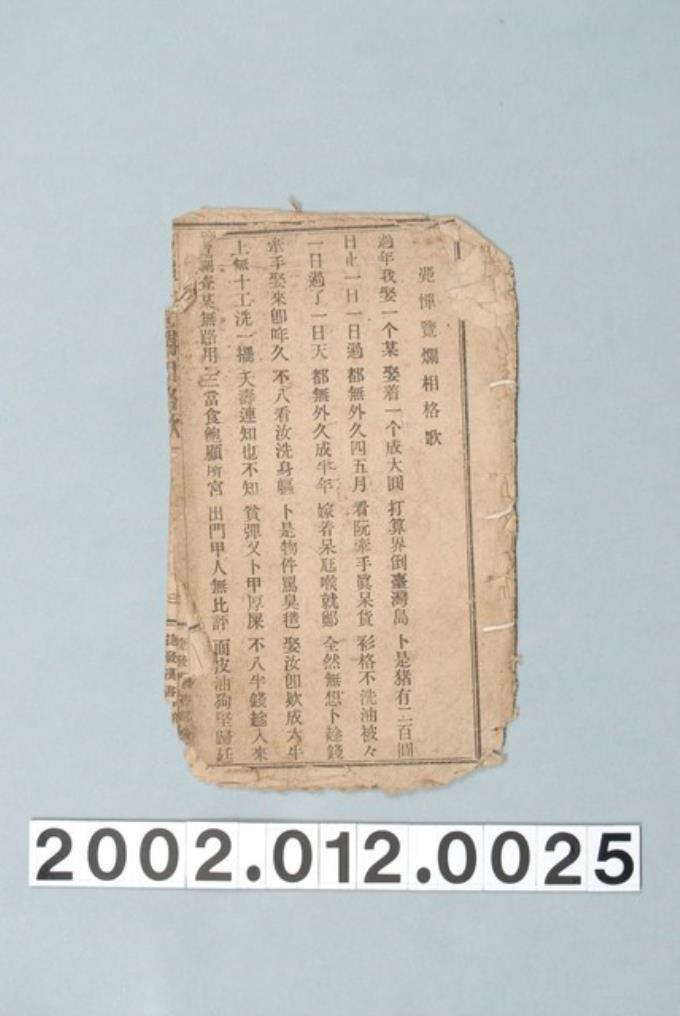 荒憚覽爛相格歌
過年我娶一个某 娶着一个成大圓 打算界倒臺灣島 卜是猪有二百圓
日止一日一日過 都無外久四五月 看阮牽手眞呆貨 彩格不洗油被々
一日過了一日天 都無外久成半年 嫁着呆尫喉就鄭 全然無想卜趁錢
牽手娶來卽年久 不八看汝洗身軀 卜是物件罵臭 娶汝卽欵成大牛
上無十工洗一擺 夭壽連知也不知 貧彈又卜甲厚屎 不八半錢趁入來
某無路用 三當食飽顧 宮 出門甲人無比評 面皮油狗
爛相格歌
三
捷發漢書
2002.012.0025